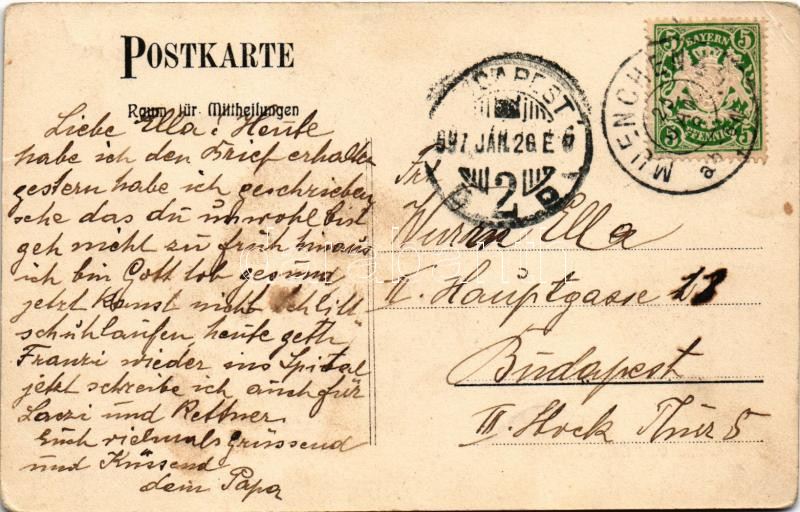 POSTKARTE
Raum für Mittheilungen
Liebe Ella! Heute
habe ich den Brief erhalten
gestern habe ich geschrieben
sehe das du unwohl bist
geh nicht zu früh hinaus
ich bin Gott lob gesund
jetzt kanst nicht schlitt
schuhlaufen, heute geth
Franzi wieder ins Spital
jetzt schreibe ich auch für
Laczi und Rettner
Euch vielmals Grüssend
und Küssend
dein Papa
BAYERN
5 5
5 5
PFENNIG
MUENCHEN
BUDAPEST
897 JAN. 26 E 6
2
Frl
Wurm Ella
II. Hauptgasse 13
Budapest
III. Stock Thür 5
darabanth